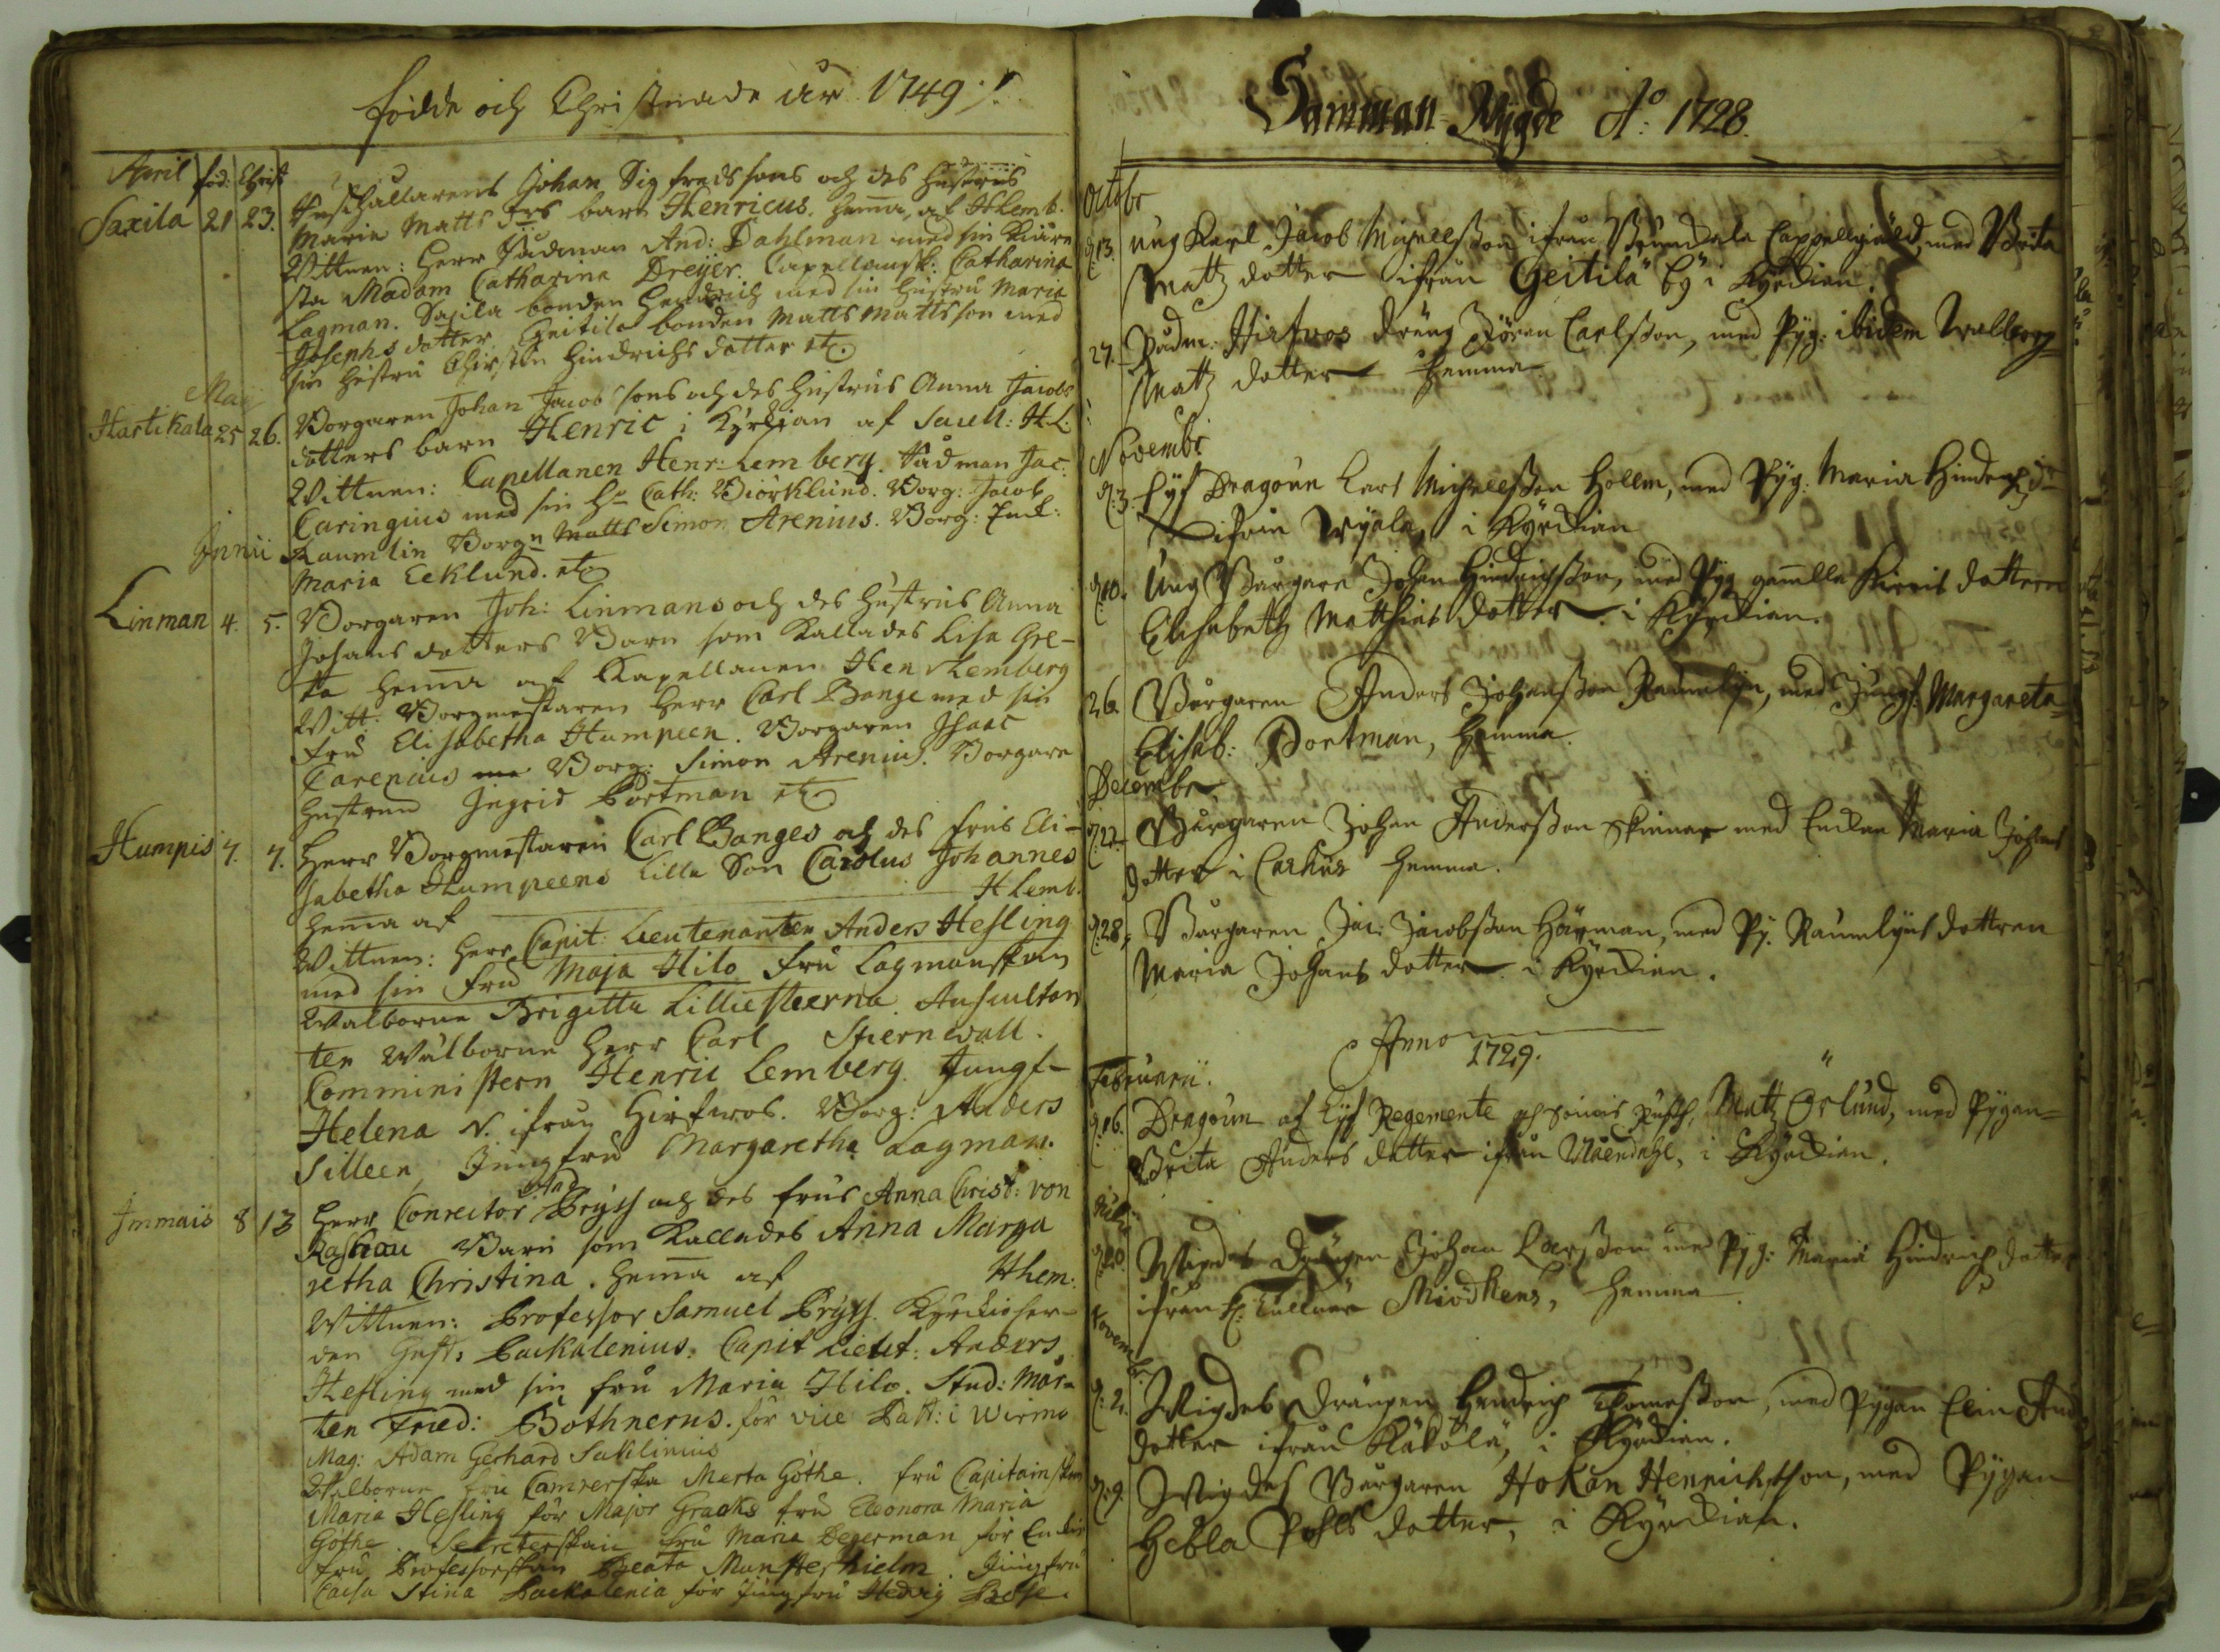 födde och Christnade år 1749 /.
April föd: Christ
Saxila 21 23. Inhallarens Johan Sigfredssons och des Hustrus
Maria Matts drs barn Henricus. hemma, af H Lemb.
Wittnen: Herr Rådman And: Dahlman med sin Kiäre
sta Madam Catharina Dreijer. Capellansk: Catharina
Lagman. Saxila bonden Hendrich med sin Hustru Maria
Josephs dotter. Geitila bonden Matts Mattsson med
sin Hustru Christin Hindrichs dotter etc.
Maij
Hartikala 25 26. Borgaren Johan Jacobsons och des Hustrus Anna Jacobs
dotters barn Henric i Kyrkian af Sacell: H.L.
Wittnen: Capellanen Henr: Lemberg. Rådman Jac:
Caringius med sin Hu Cath: Biörklund. Borg: Jacob
Raumlin Borgn Matts Simon Arenius. Borg: Enk:
Maria Ecklund. etc
Junii
Linman 4. 5. Borgaren Joh: Linmans och des Hustrus Anna
Johans dotters Barn som Kallades Lisa Gre-
ta hemma af Kapellanen Hen Lemberg
Witt: Borgmestaren Herr Carl Bange med sin
fru Elisabetha Humpeen. Borgaren Isaac
Carenius Borg: Simon Arenius. Borgare
hustrun Ingrid Portman etc
Humpis 7. 7. Herr Borgmestaren Carl Banges och des frus Eli-
sabetha Humpeens lilla Son Carolus Johannes
hemma af H Lemb.
Wittnen: Herr Capit: Lieutenanten Anders Hesling
med sin fru Maja Hilo fru Lagmanskan
Walborne Brigitta Lilliestierna. Auscultan
ten Wälborne Herr Carl Stiernwall.
Comministern Henric Lemberg. Jungf-
Helena N. ifrån Hirfwos. Borg: Anders
Silleen, Jungfru Margaretha Lagman.
Immais 8 13 Herr Conrector And Pryss och des frus Anna Christ: von
Raschau Barn som Kallades Anna Marga
retha Christina. hemma af H Lem:
Wittnen: Professor Samuel Pryss. Kyrkioher-
den Gust: Packalenius. Capit Lieut: Anders
Hesling med sin fru Maria Hilo. Stud: Mår-
ten Fried: Bothnerus. för vice Past: i Wirmo
Mag: Adam Gerhard Sahlinius
Welborne fru Camrerska Merta Göthe. fru Capitainskan
Maria Hesling för Major Graaks fru Eleonora Maria
Göthe. Secreterskan fru Maria Degerman för Enke
fru Professorskan Beata Munsterhielm. Jungfru
Caisa Stina Packalenia för jungfru Hedvig Bose.
Samman-Wigde Ao: 1728.
Octobr
d. 13. ung Karl Jacob Michelsson ifrån Capellgiäld, med Brita
Matz dotter ifrån Geitila by i Kyrckian.
27. Rådm: Hirfwos dräng Jören Carlsson, med Pyg: ibidem Walborg
Matz dotter hemma.
Novembr
d. 3. Lijf Dragoun Lars Michelsson Hollm, med Pyg: Maria Hindrichs dr
ifrån i Kyrckian
d. 10. Ung Burgare Johan Hindrichsson, med Pyg gamla dotteren
Elisabeth Matthies dotter i Kyrckian.
26. Burgaren Anders Johansson Raumlijn, med Jungf: Margareta
Elisab: Portman, hemma.
Decembr
d. 22. Burgaren Johan Andersson Skinnar med Enkan Maria Johans
dotter i hemma.
d. 28. Burgaren Jac: Jacobsson Hårman, med Py. Raumlyns dottren
Maria Johans dotter i Kyrckian.
Anno
1729.
Februarii.
d. 16. Dragoun af Lijf Regemente Matz Örlund, med Pygan
Brita Anders dotter ifrån i Kyrckian.
Julii
d. 20. Wigdes Drängen Johan Larsson med Pyg: Maria Hindrichs dotter
ifrån Miödkens, hemma.
Novembr.
d. 2. Wigdes Drängen Hendrich Thomasson, med Pygan Elin And
dotter ifrån Käköla, i Kyrckian.
d. 9. Wigdes Burgaren Hokan Henrichsson, med Pygan
Hebla Pohls dotter, i Kyrckian.